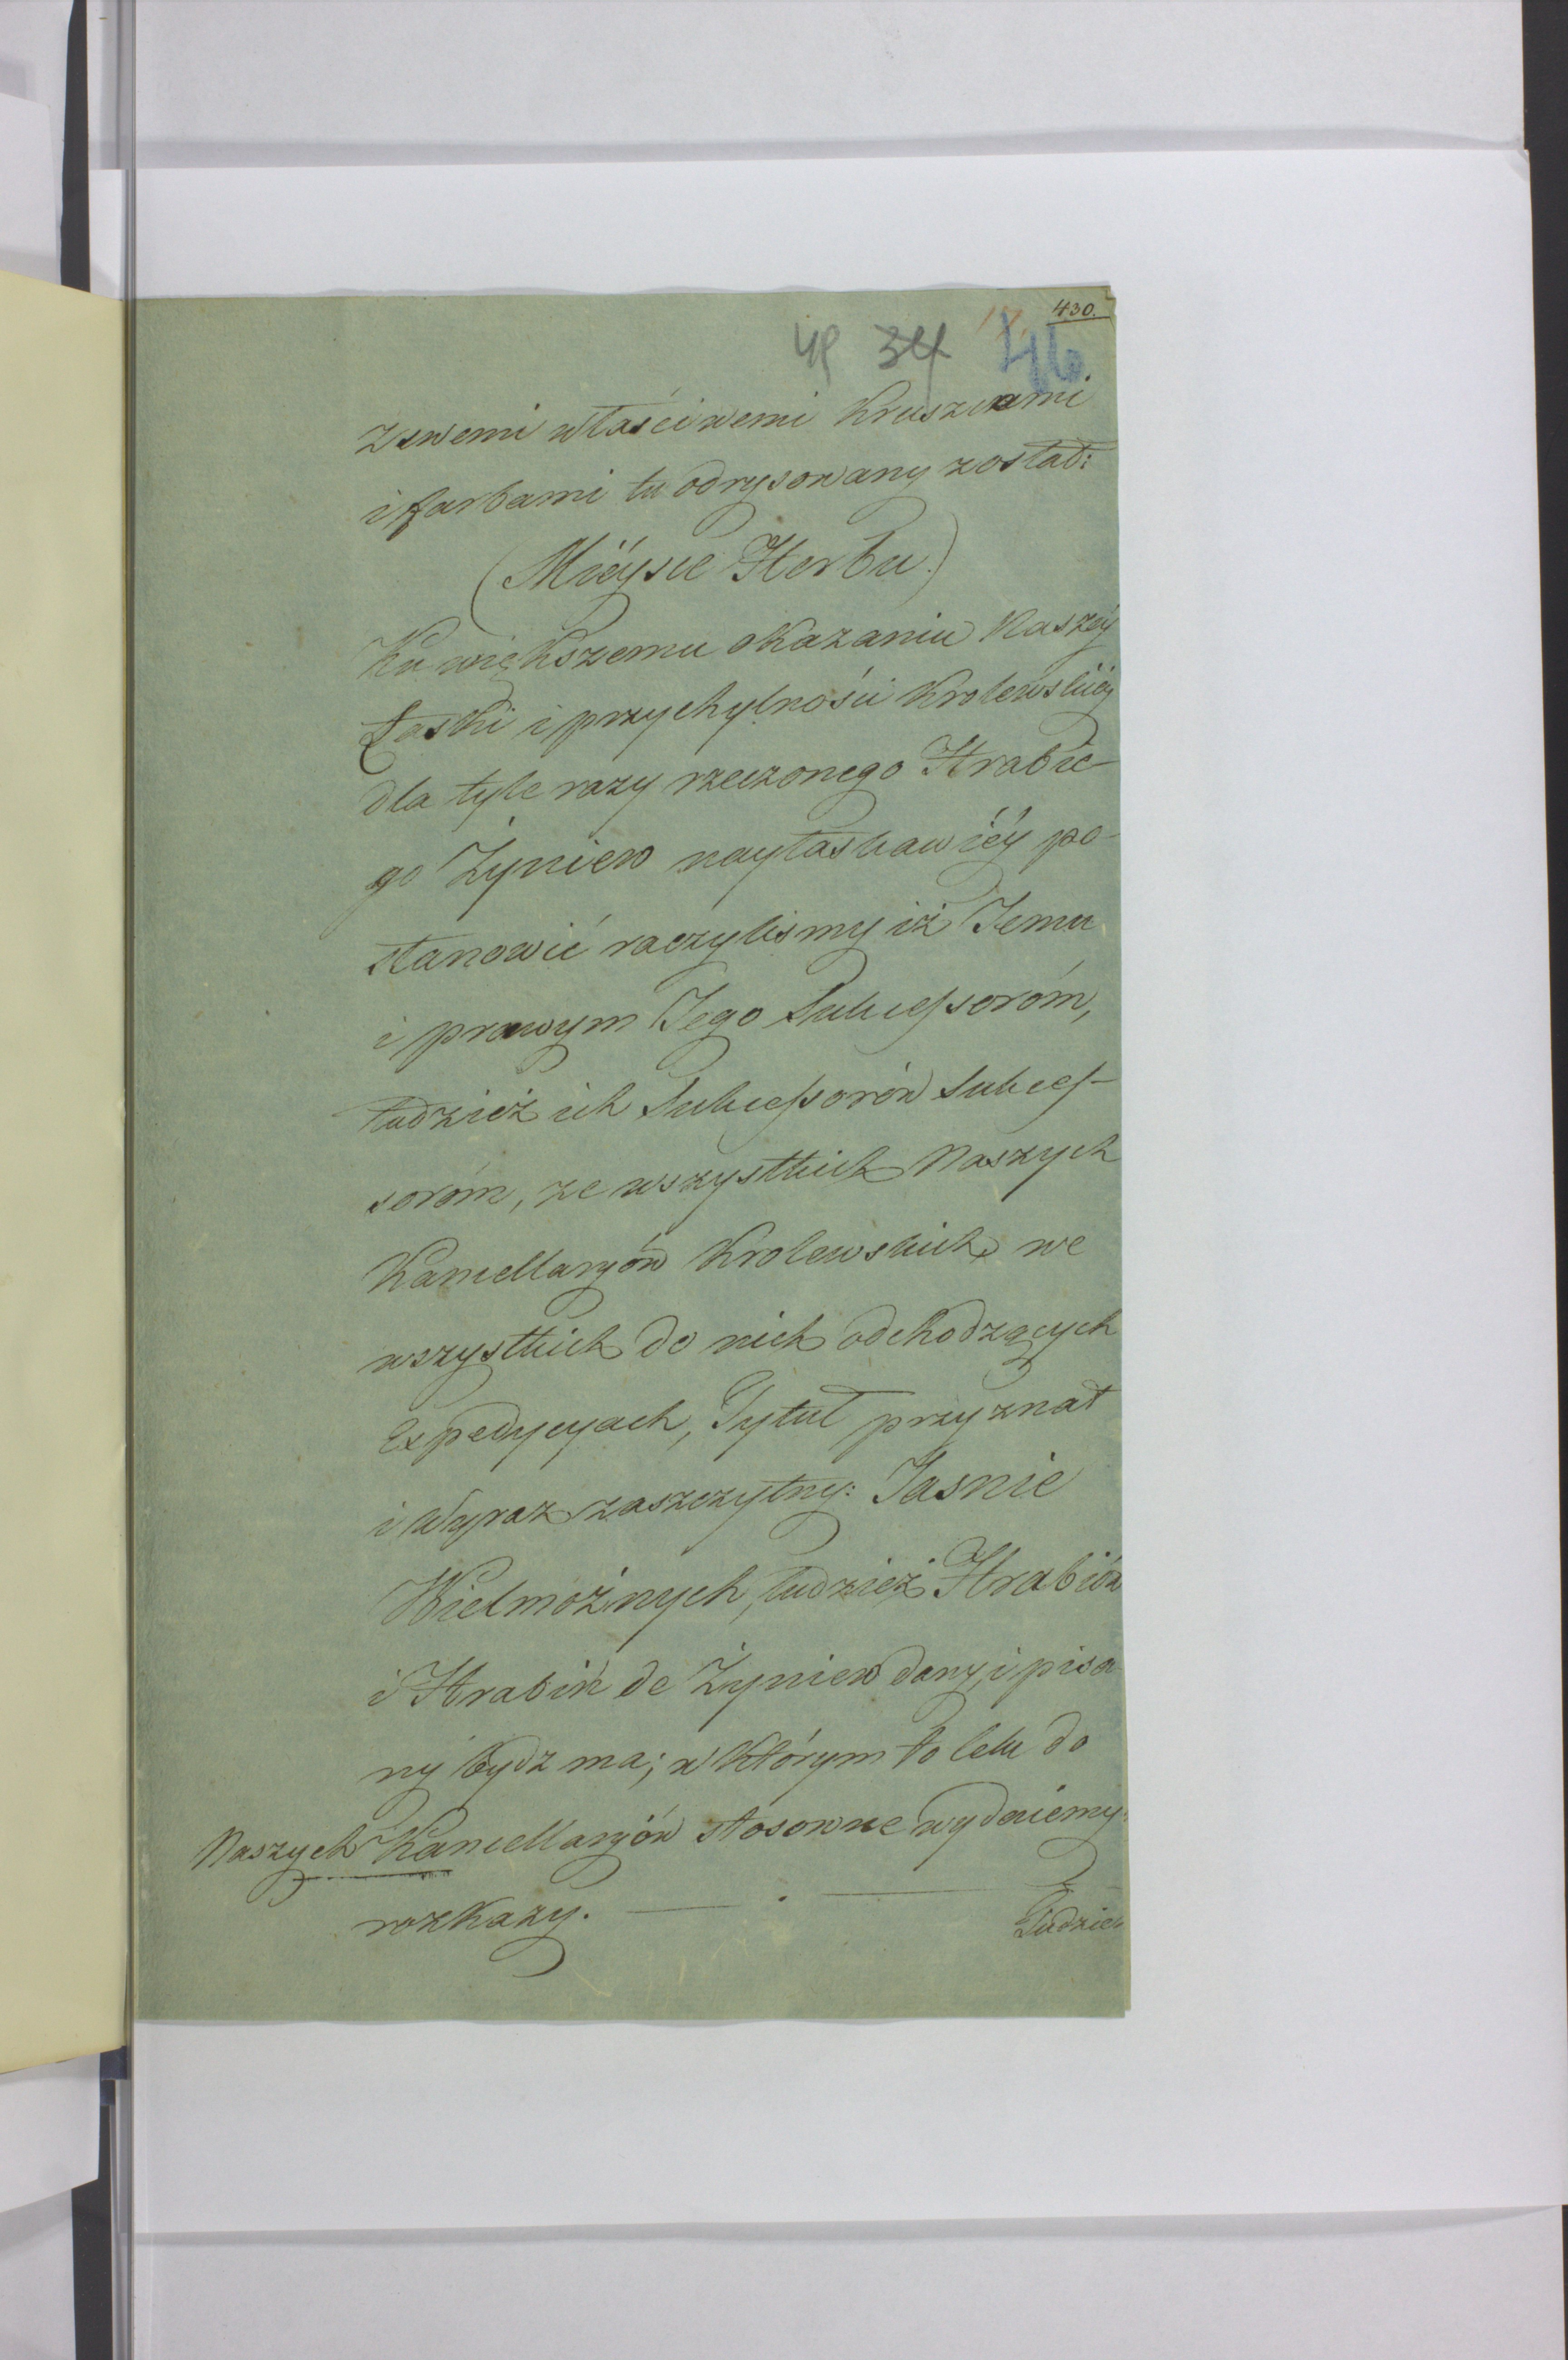 430.
49 34 46
z swemi właściwemi Kruszcami
i farbami tu odrysowany został:
(Miéysce Herbu.)
Ku większemu okazaniu Naszéy
Łaski i przychylności Krolewskiéy
dla tyle razy rzeczonego Hrabie-
go Żyniew nayłaskawiéy po-
stanowić raczylismy iż Jemu
i prawym Jego Sukcessoróm,
tudzież ich Sukcessorów Sukces-
soróm, ze wszystkich Naszych
Kancellaryów Krolewskich, we
wszystkich do nich odchodzących
Expedycyach, Tytuł przyznał
i Wyraz zaszczytny: Jasnie
Wielmożnych, tudzież Hrabiów
i Hrabin de Żyniew dany, i pisa-
ny bydz ma; w którym to celu do
Naszych Kancellaryów stosowne wydaiemy
rozkazy.
Tudzież